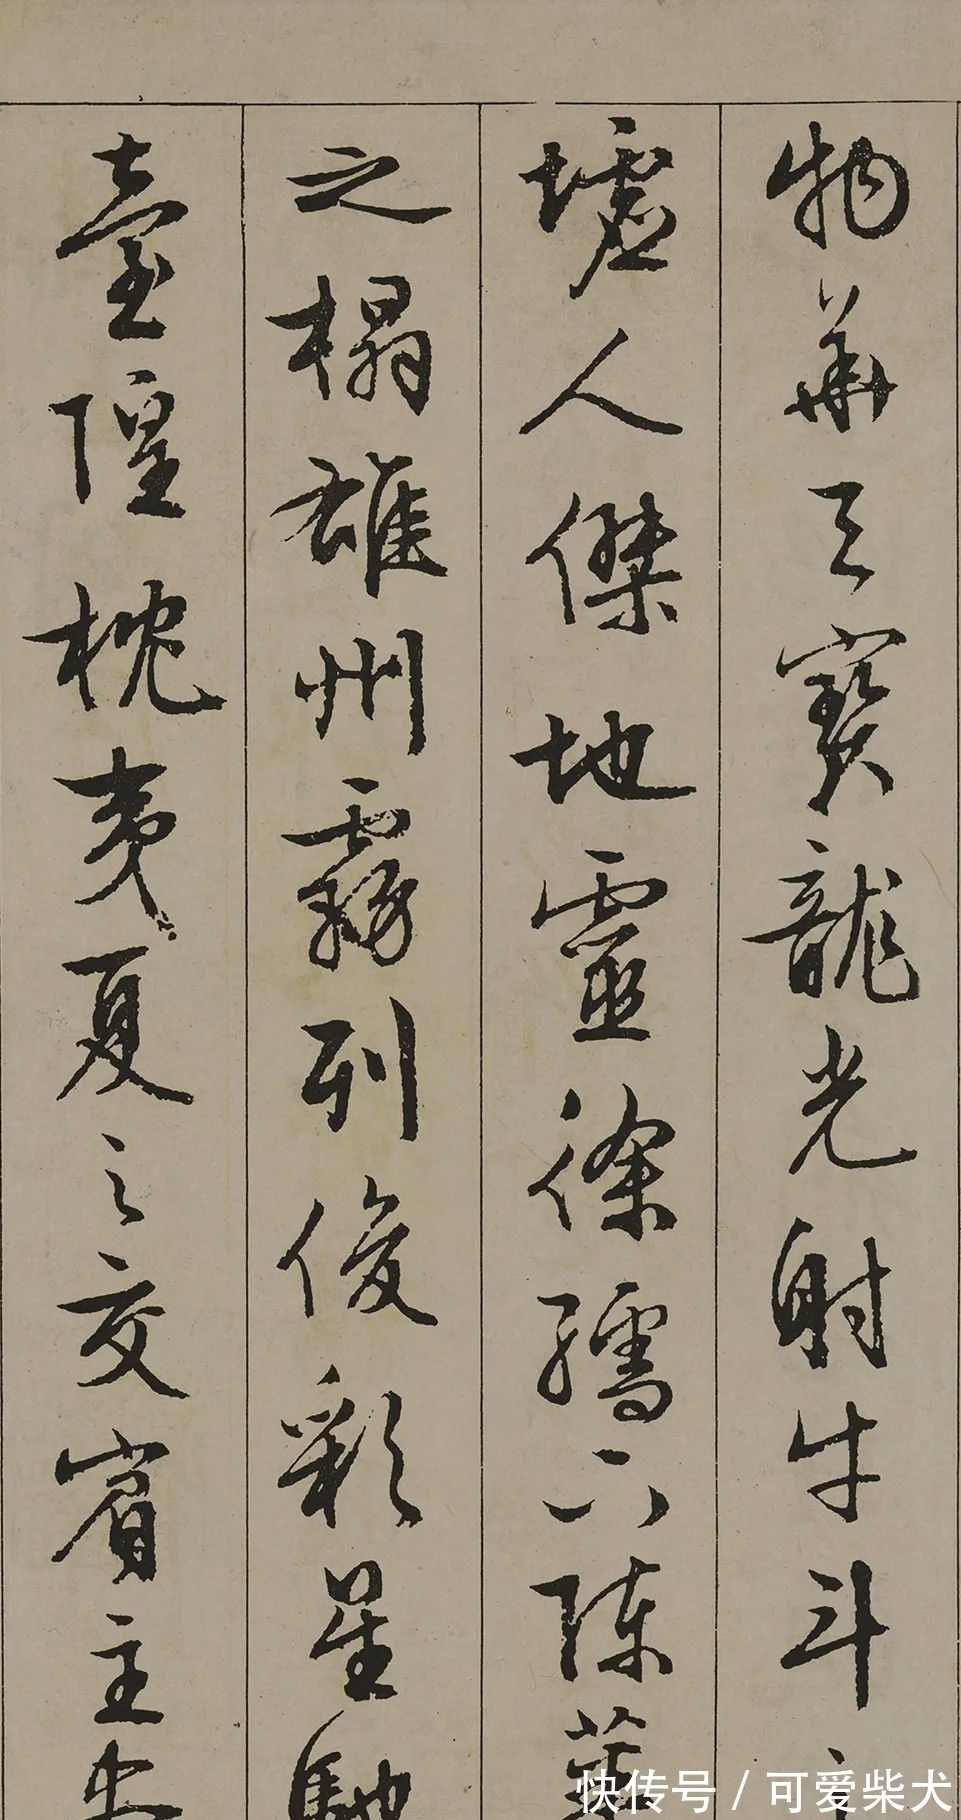 物華天寶龍光射牛斗
墟人傑地靈徐孺下陳蕃
之榻雄州霧列俊彩星馳
臺隍枕夷夏之交賓主
快传号 / 可爱柴犬